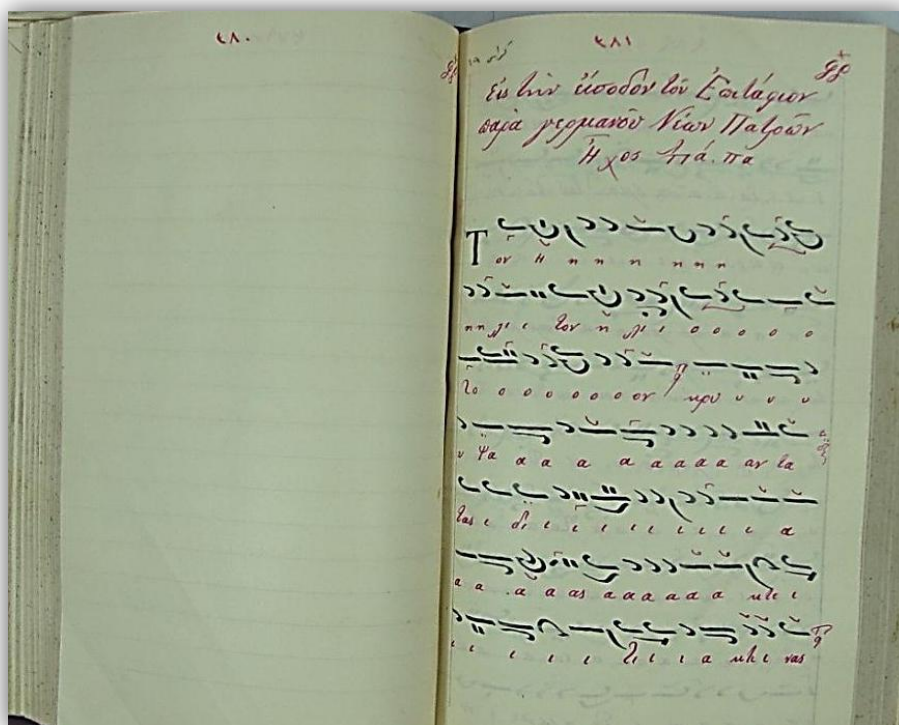 ٤٨٠
٤٨١
Εἰς τὴν εἴσοδον τοῦ Ἐπιτάφιον
παρὰ γερμανοῦ Νέων Πατρῶν
Ἦχος πα
Τον η η η η η η η
η η λι ι τον η λι ι ο ο ο ο ο
το ο ο ο ο ο ο ον κρυ υ υ υ
υ ψα α α α α α α α α αν τα
τας ι δι ι ι ι ι ι ι ι ι α
α α α α ας α α α α α α κτι ι
ι ι ι ι ι τι ι ι α κτι ι νας